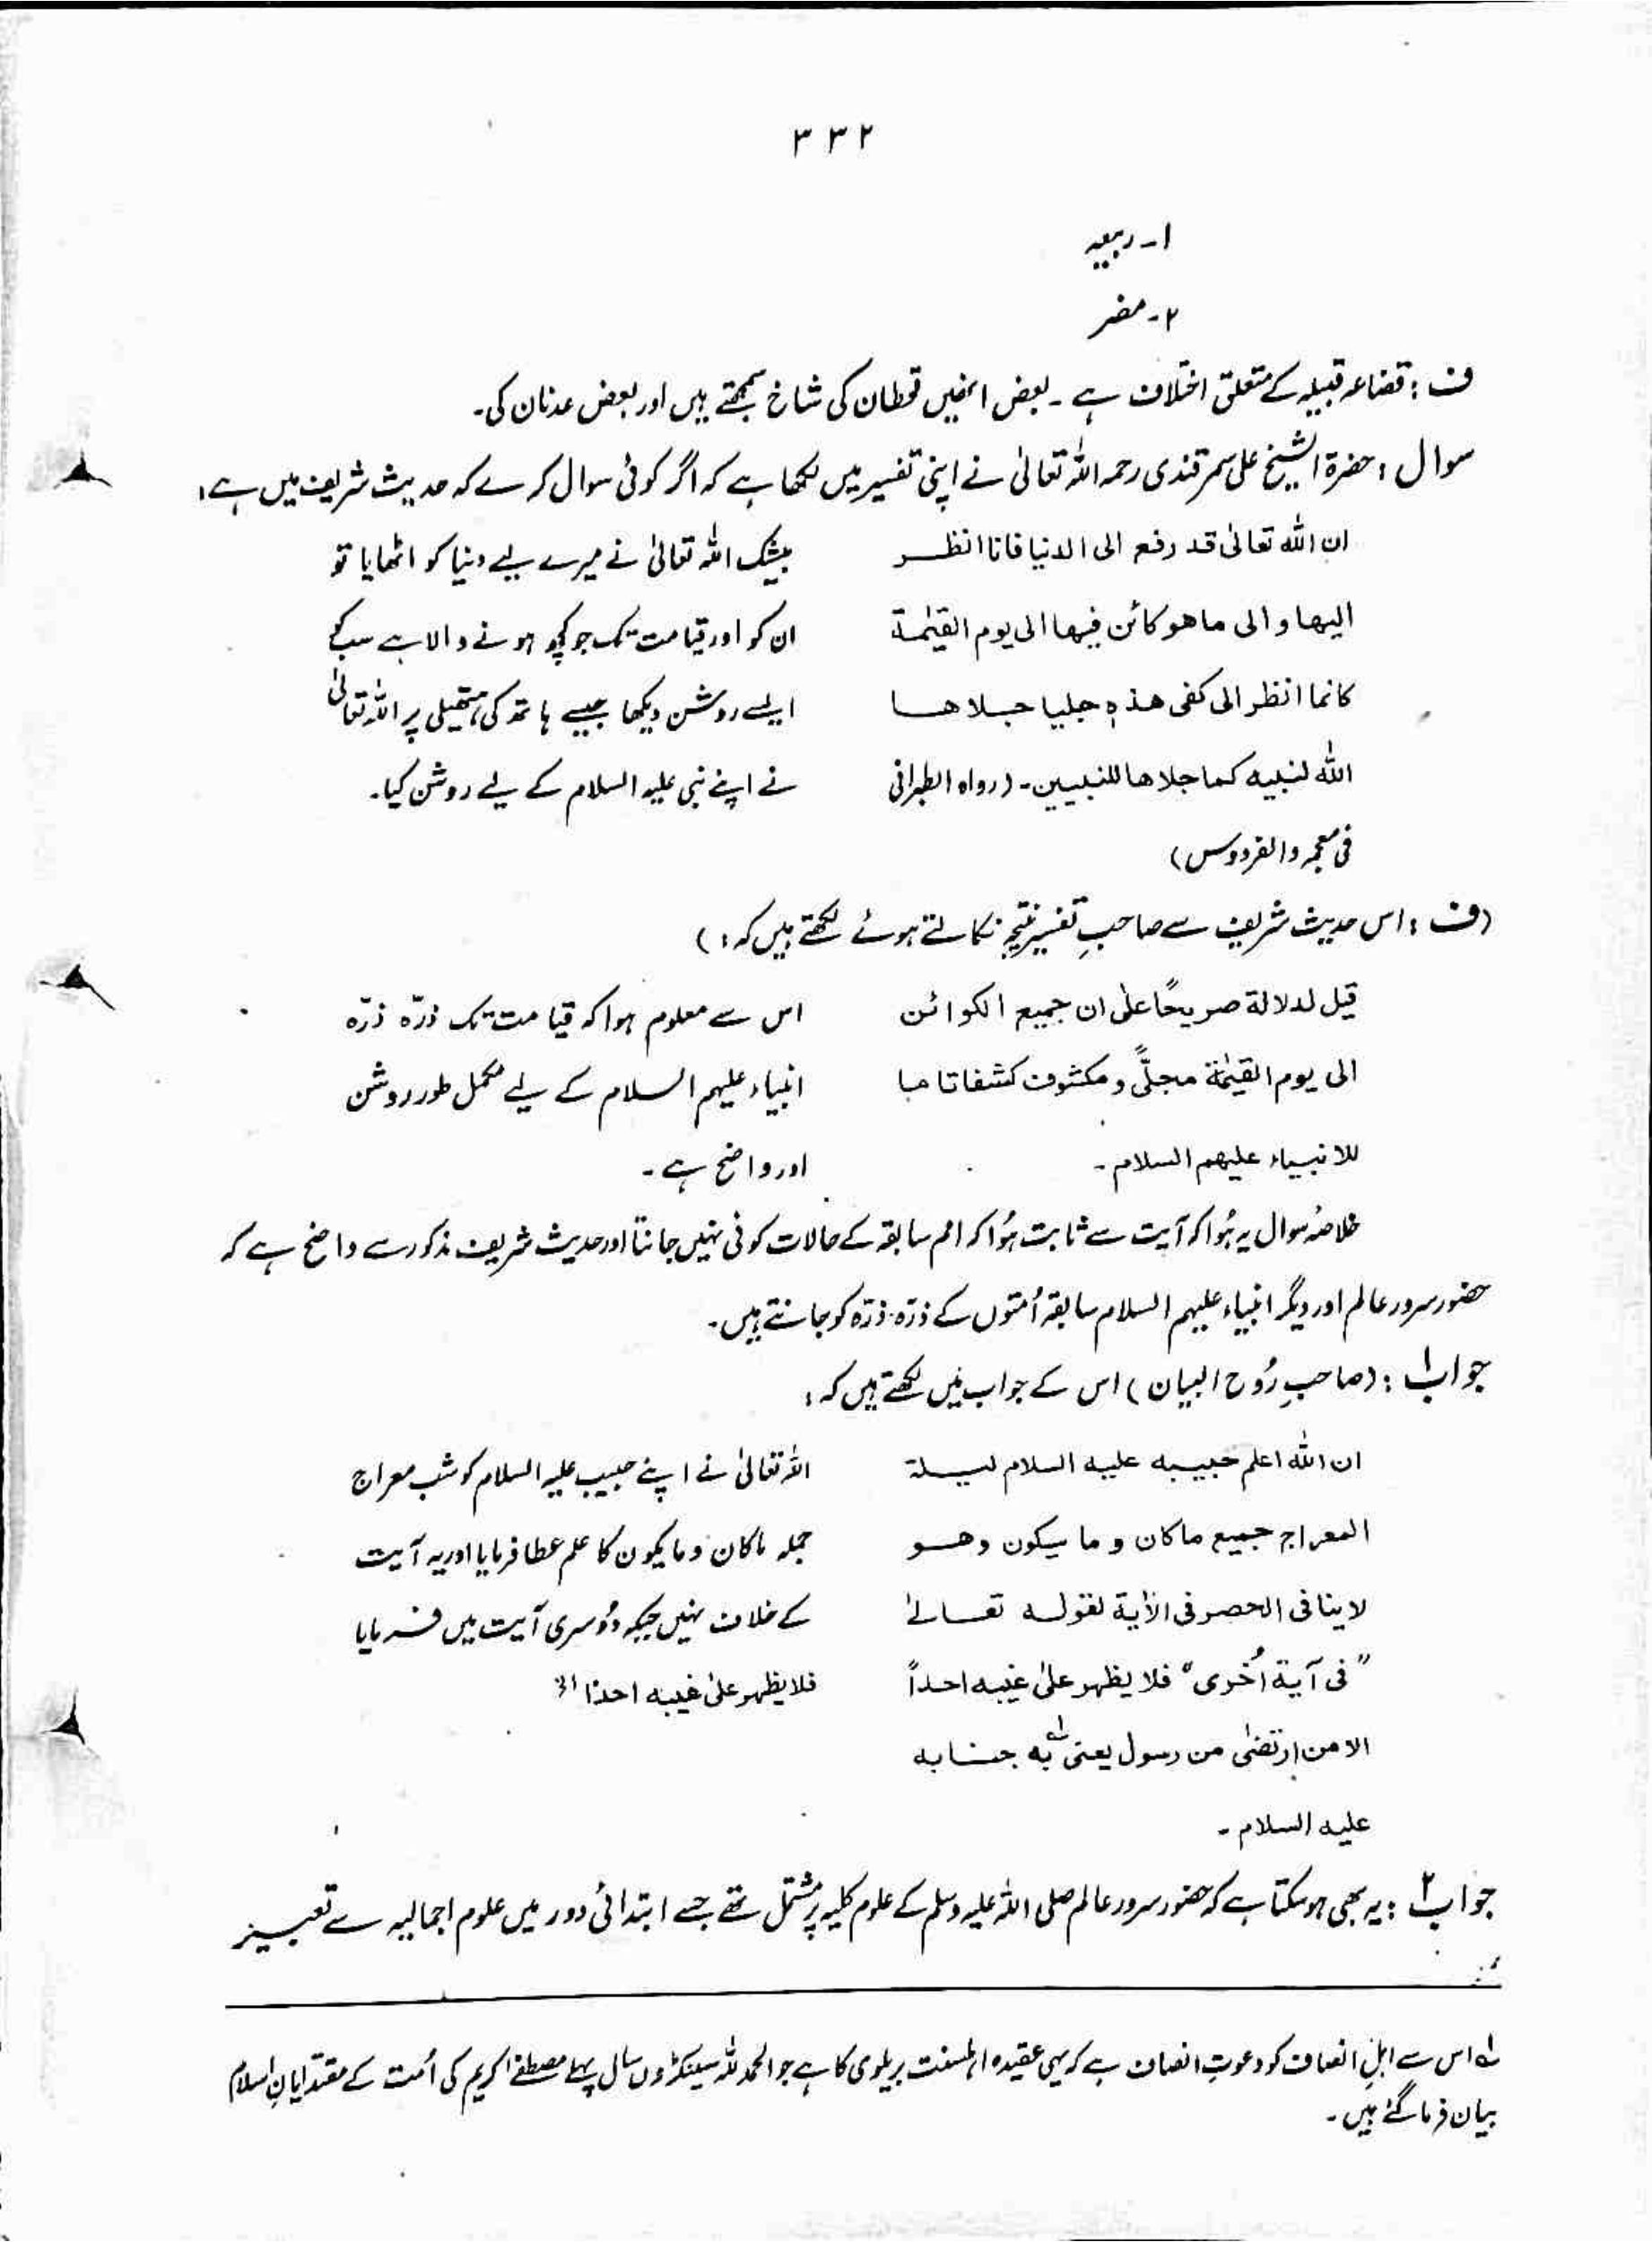 ۳۳۲
۱۔ ربیعہ
۲۔ مضر
ف : قضاعہ قبیلہ کے متعلق اختلاف ہے ۔ بعض انھیں قحطان کی شاخ سمجھتے ہیں اور بعض عدنان کی ۔
سوال : حضرۃ الشیخ علی سمرقندی رحمہ اللہ تعالیٰ نے اپنی تفسیر میں لکھا ہے کہ اگر کوئی سوال کرے کہ حدیث شریف میں ہے :
ان اللہ تعالیٰ قد رفع الی الدنیا فانا انظر
الیہا و الی ما ھو کائن فیہا الی یوم القیٰمۃ
کانما انظر الی کفی ھذہٖ جلیا جلاھا
اللہ لنبیہ کما جلاھا للنبیین ۔ (رواہ الطبرانی
فی معجمہ والفردوس)
بیشک اللہ تعالیٰ نے میرے لیے دنیا کو اٹھایا تو
ان کو اور قیامت تک جو کچھ ہونے والا ہے سب کو
ایسے روشن دیکھا جیسے ہاتھ کی ہتھیلی پر اللہ تعالیٰ
نے اپنے نبی علیہ السلام کے لیے روشن کیا ۔
(ف : اس حدیث شریف سے صاحبِ تفسیر نتیجہ نکالتے ہوئے لکھتے ہیں کہ : )
قیل لدلالۃ صریحًا علیٰ ان جمیع الکوائن
الی یوم القیٰمۃ مجلًّی و مکشوف کشفا تاما
للانبیاء علیہم السلام ۔
اس سے معلوم ہوا کہ قیامت تک ذرّہ ذرّہ
انبیاء علیہم السلام کے لیے مکمل طور روشن
اور واضح ہے ۔
خلاصۂ سوال یہ ہُوا کہ آیت سے ثابت ہُوا کہ امم سابقہ کے حالات کوئی نہیں جانتا اور حدیث شریف مذکور سے واضح ہے کہ
حضور سرور عالم اور دیگر انبیاء علیہم السلام سابقہ اُمتوں کے ذرّہ ذرّہ کو جانتے ہیں ۔
جواب ۱ : (صاحبِ رُوح البیان) اس کے جواب میں لکھتے ہیں کہ :
ان اللہ اعلم حبیبہ علیہ السلام لیلۃ
المعراج جمیع ماکان و ما سیکون و ھو
لا ینافی الحصر فی الاٰیۃ لقولہ تعالیٰ
"فی آیۃ اُخری" فلا یظہر علیٰ غیبہ احداً
الا من ارتضٰی من رسول یعنی بہ جنابہ
علیہ السلام ۔
اللہ تعالیٰ نے اپنے حبیب علیہ السلام کو شب معراج
جملہ ماکان و مایکون کا علم عطا فرمایا اور یہ آیت
کے خلاف نہیں جبکہ دُوسری آیت میں فرمایا
فلا یظہر علیٰ غیبہ احدًا الخ
جواب ۲ : یہ بھی ہو سکتا ہے کہ حضور سرور عالم صلی اللہ علیہ وسلم کے علوم کلیہ پر مشتمل تھے جسے ابتدائی دور میں علوم اجمالیہ سے تعبیر
لے اس سے اہلِ انصاف کو دعوتِ انصاف ہے کہ یہی عقیدہ اہلسنت بریلوی کا ہے جو الحمد للہ سینکڑوں سال پہلے مصطفےٰ کریم کی اُمت کے مقتدایانِ اسلام
بیان فرما گئے ہیں ۔